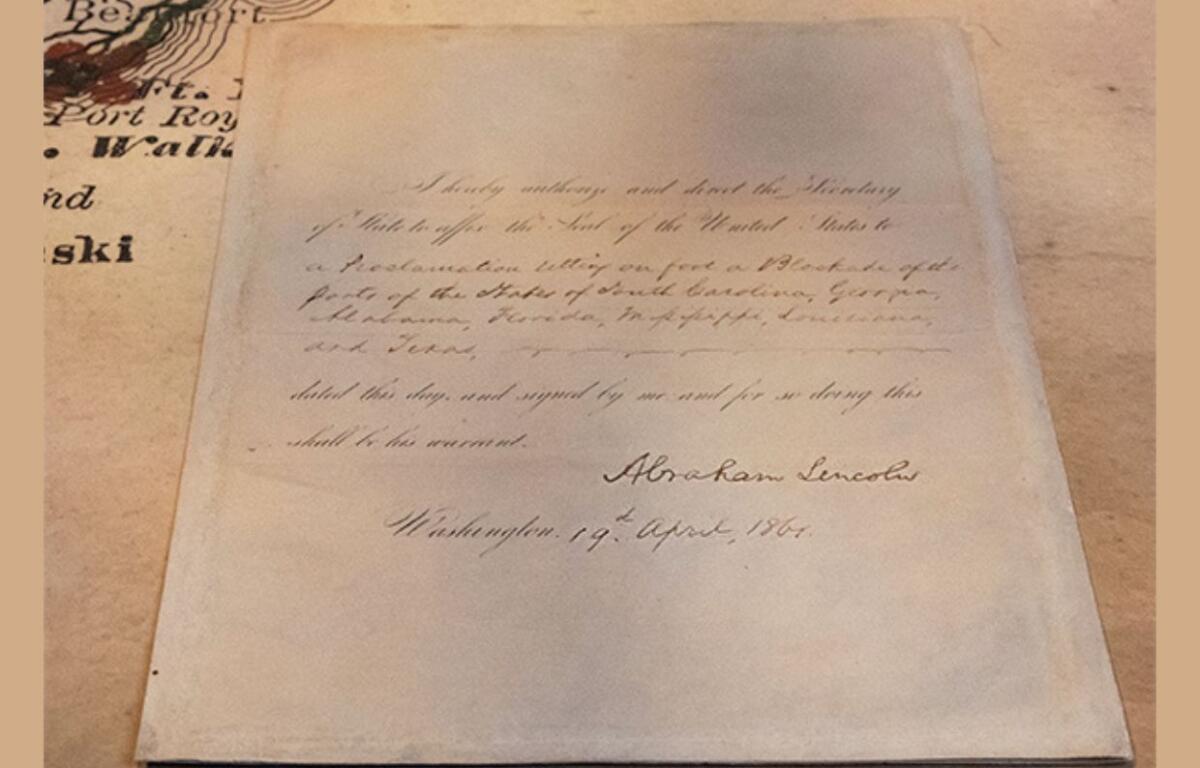 Beaufort
Ft.
Port Roy
. Walk
nd
ski
I hereby authorize and direct the Secretary
of State to affix the Seal of the United States to
a Proclamation setting on foot a Blockade of the
ports of the States of South Carolina, Georgia,
Alabama, Florida, Mississippi, Louisiana,
and Texas,
dated this day, and signed by me and for so doing this
shall be his warrant.
Abraham Lincoln
Washington, 19th April, 1861.